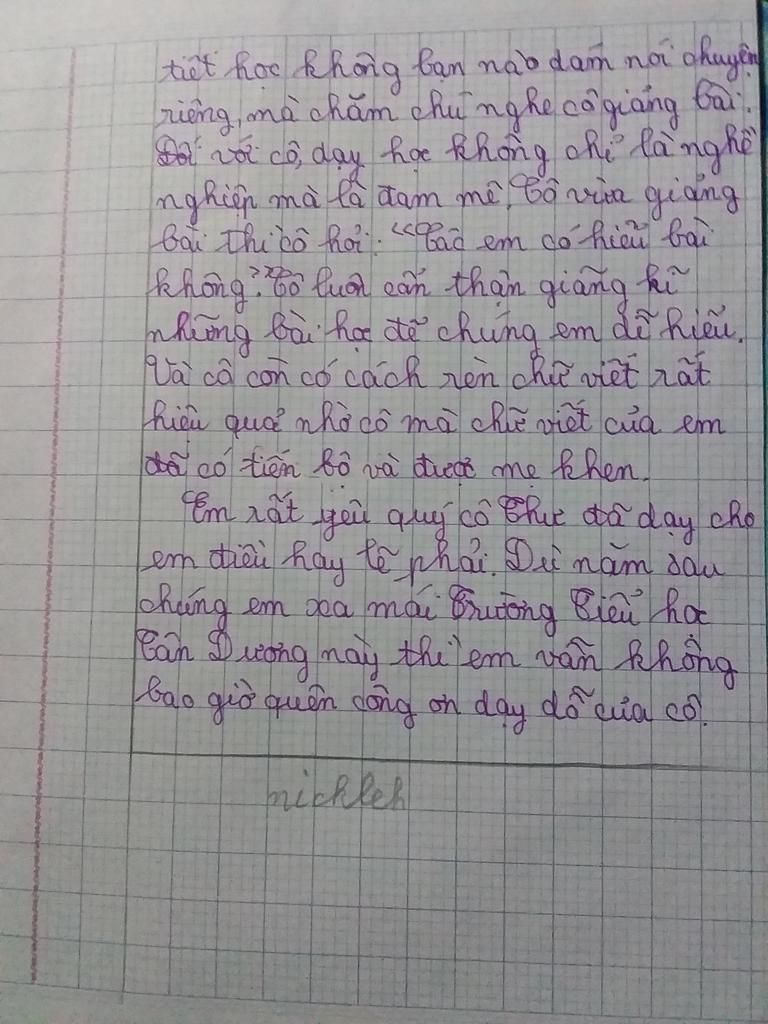 tiết học không bạn nào dám nói chuyện
riêng, mà chăm chú nghe cô giảng bài.
Đối với cô, dạy học không chỉ là nghề
nghiệp mà là đam mê. Cô vừa giảng
bài thì cô hỏi: "Các em có hiểu bài
không?" Cô luôn cẩn thận giảng kĩ
những bài học để chúng em dễ hiểu.
Và cô còn có cách rèn chữ viết rất
hiệu quả nhờ cô mà chữ viết của em
đã có tiến bộ và được mẹ khen.
Em rất yêu quý cô Thư đã dạy cho
em điều hay lẽ phải. Dù năm sau
chúng em xa mái Trường Tiểu học
Tân Dương này thì em vẫn không
bao giờ quên công ơn dạy dỗ của cô.